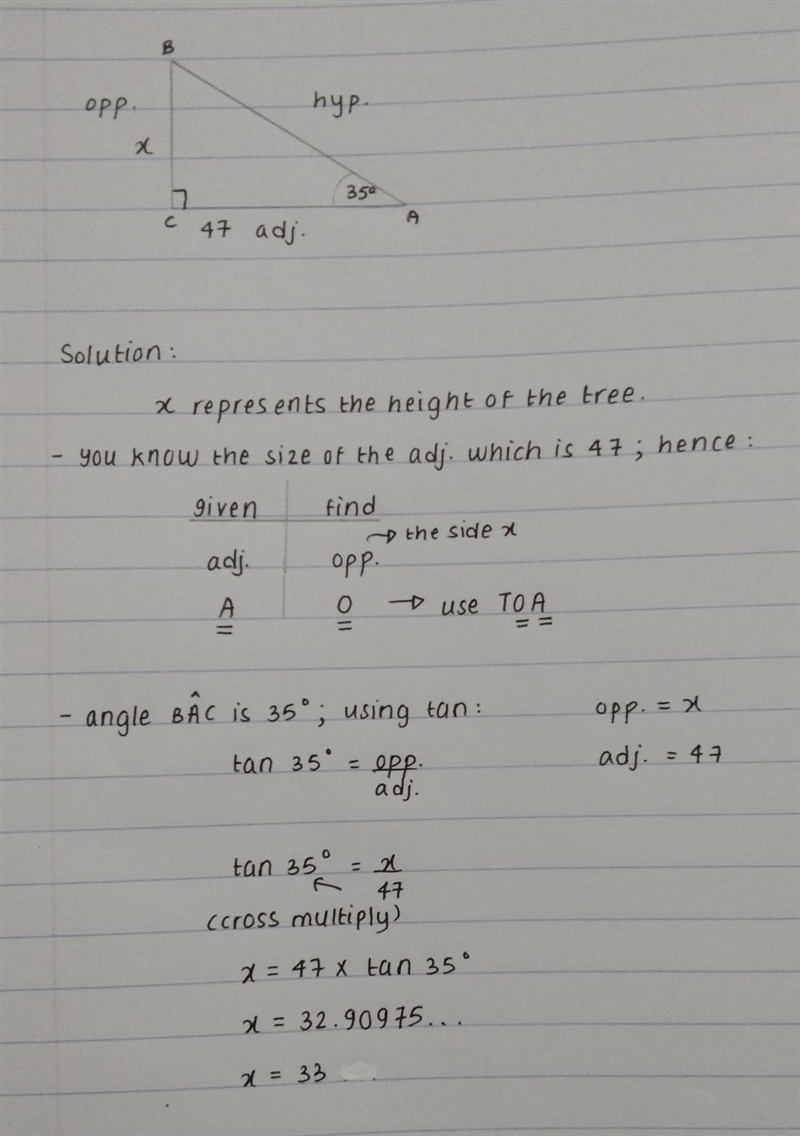 B
opp.
hyp.
x
35°
C
47 adj.
A
Solution:
x represents the height of the tree.
- you know the size of the adj. which is 47; hence:
given find
→ the side x
adj. opp.
A O → use TOA
- angle BÂC is 35°; using tan: opp. = x
tan 35° = opp. adj. = 47
adj.
tan 35° = x
47
(cross multiply)
x = 47 x tan 35°
x = 32.90975...
x = 33